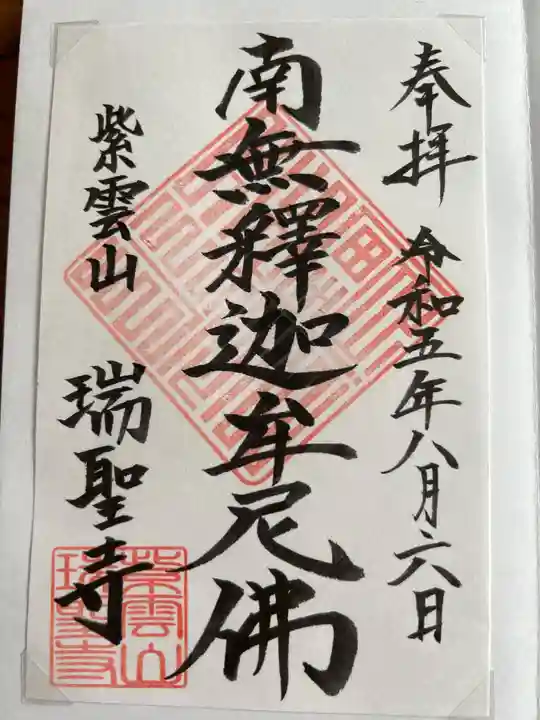 奉拝
令和五年八月六日
南無釋迦牟尼佛
紫雲山
瑞聖寺
紫雲山
瑞聖寺